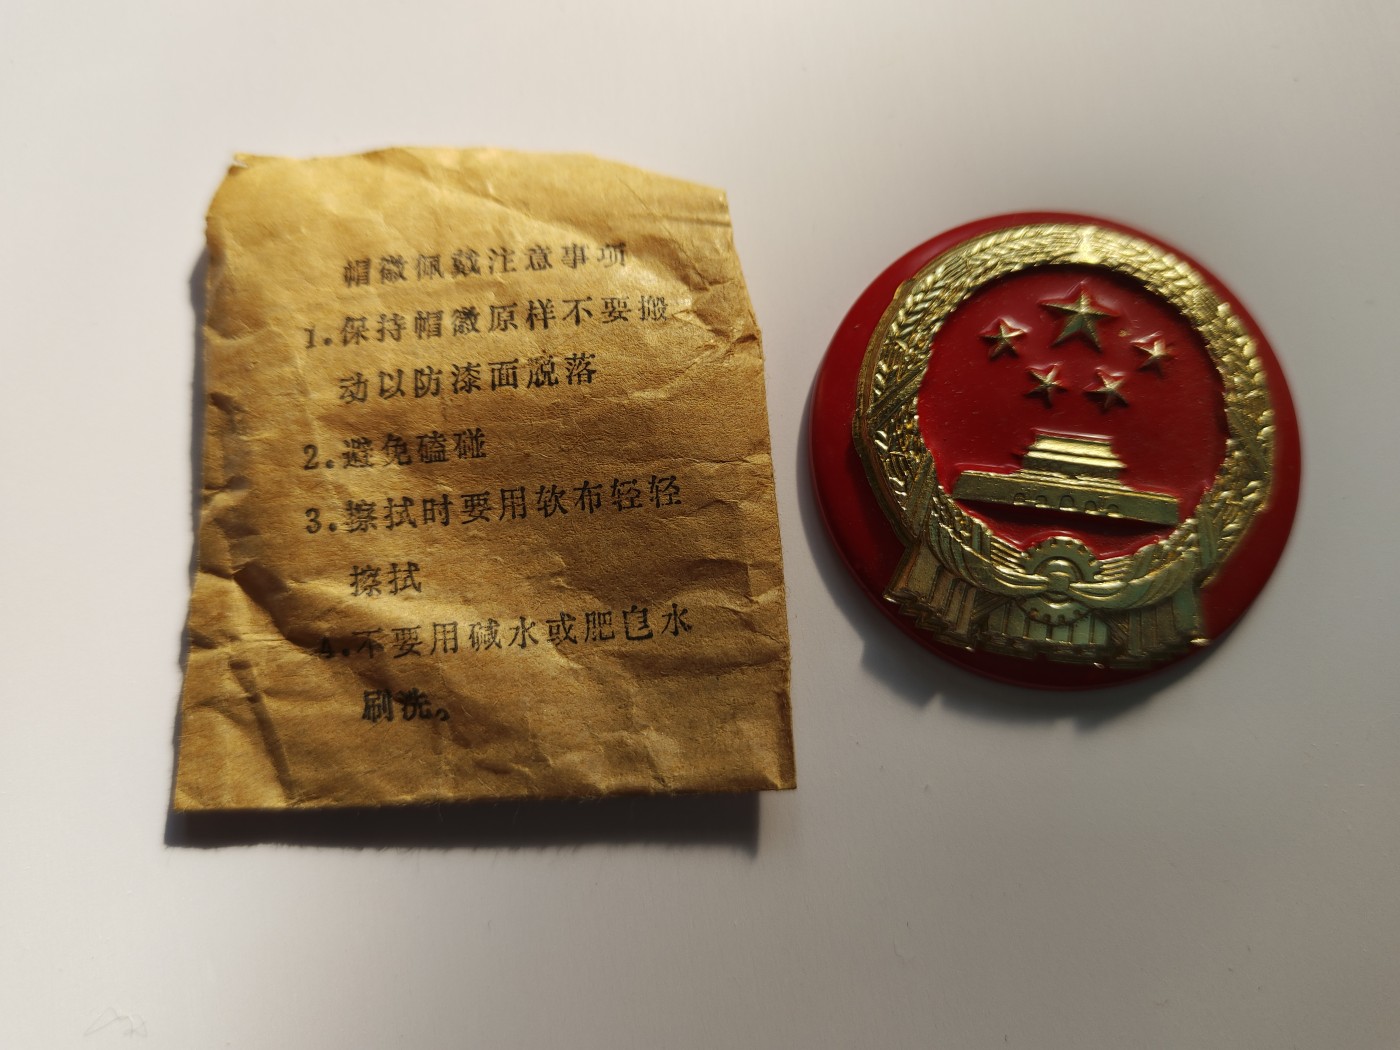 帽徽佩戴注意事项
1.保持帽徽原样不要搬
动以防漆面脱落
2.避免磕碰
3.擦拭时要用软布轻轻
擦拭
4.不要用碱水或肥皂水
刷洗。